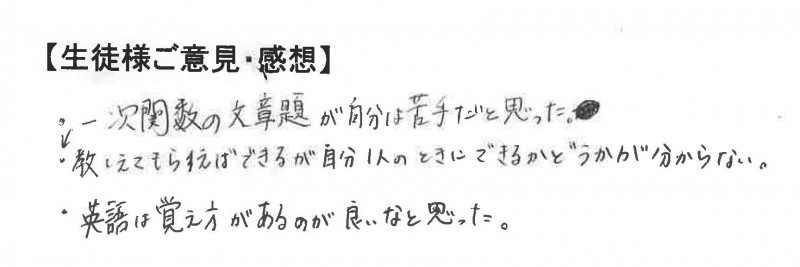 【生徒様ご意見・感想】
・一次関数の文章題が自分は苦手だと思った。
・教えてもらえばできるが自分1人のときにできるかどうかが分からない。
・英語は覚え方があるのが良いなと思った。